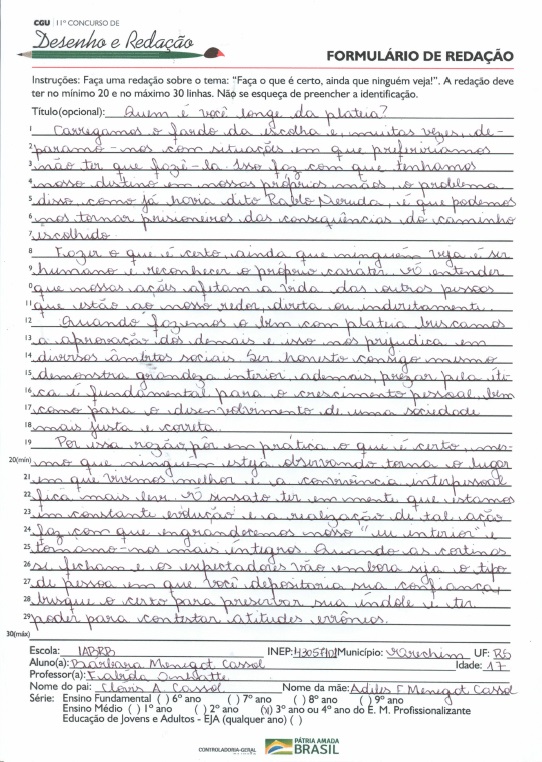 CGU | 11º CONCURSO DE
Desenho e Redação
FORMULÁRIO DE REDAÇÃO
Instruções: Faça uma redação sobre o tema: "Faça o que é certo, ainda que ninguém veja!". A redação deve
ter no mínimo 20 e no máximo 30 linhas. Não se esqueça de preencher a identificação.
Título(opcional): Quem é você longe da plateia?
1 Carregamos o fardo da escolha e, muitas vezes, de-
2 paramo-nos com situações em que preferiríamos
3 não ter que fazê-la. Isso faz com que tenhamos
4 nosso destino em nossas próprias mãos, o problema
5 disso, como já havia dito Pablo Neruda, é que podemos
6 nos tornar prisioneiros das consequências do caminho
7 escolhido.
8 Fazer o que é certo, ainda que ninguém veja é ser
9 humano e reconhecer o próprio caráter. É entender
0 que nossas ações afetam a vida das outras pessoas
11 que estão ao nosso redor, direta ou indiretamente.
12 Quando fazemos o bem com plateia buscamos
13 a aprovação dos demais e isso nos prejudica em
14 diversos âmbitos sociais. Ser honesto consigo mesmo
15 demonstra grandeza interior, ademais, prezar pela éti-
16 ca é fundamental para o crescimento pessoal, bem
17 como para o desenvolvimento de uma sociedade
18 mais justa e correta.
19 Por essa razão, pôr em prática o que é certo, mes-
20(min) mo que ninguém esteja observando torna o lugar
21 em que vivemos melhor e a convivência interpessoal
22 fica mais leve. É sensato ter em mente que estamos
23 em constante evolução e a realização de tal ação
24 faz com que engrandecemos nosso "eu interior" e
25 tornamo-nos mais íntegros. Quando as cortinas
26 se fecham e os espectadores vão embora seja o tipo
27 de pessoa em que você depositaria sua confiança,
28 busque o certo para preservar sua índole e ter
29 poder para contestar atitudes errôneas.
30(máx)
Escola: IABRB INEP: Município: Erechim UF: RS
Aluno(a): Bárbara Menegot Cassol Idade: 17
Professor(a):
Nome do pai: Clovis A. Cassol Nome da mãe: Menegot Cassol
Série: Ensino Fundamental ( ) 6º ano ( ) 7º ano ( ) 8º ano ( ) 9º ano
Ensino Médio ( ) 1º ano ( ) 2º ano (x) 3º ano ou 4º ano do E. M. Profissionalizante
Educação de Jovens e Adultos - EJA (qualquer ano) ( )
CONTROLADORIA-GERAL
DA UNIÃO
PÁTRIA AMADA
BRASIL